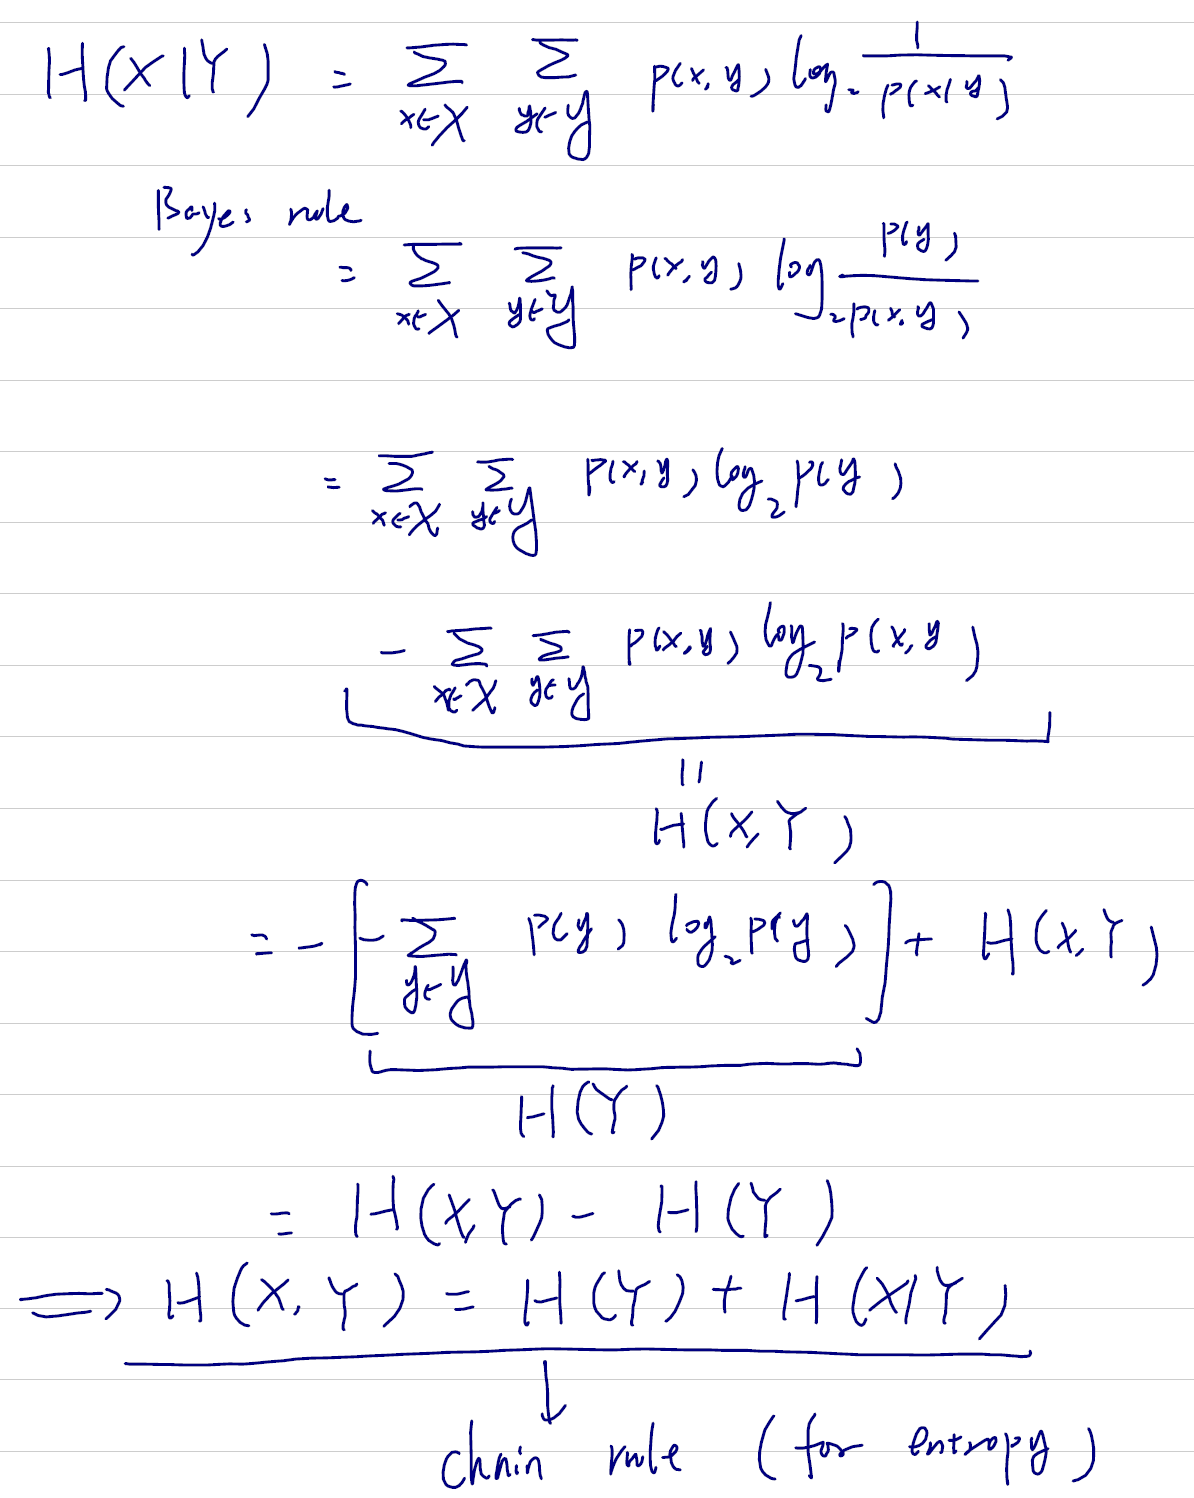 H(X|Y) = Σ_{x∈𝒳} Σ_{y∈𝒴} p(x,y) log₂ 1/p(x|y)
Bayes rule
= Σ_{x∈𝒳} Σ_{y∈𝒴} p(x,y) log₂ p(y)/p(x,y)
= Σ_{x∈𝒳} Σ_{y∈𝒴} p(x,y) log₂ p(y)
- Σ_{x∈𝒳} Σ_{y∈𝒴} p(x,y) log₂ p(x,y)
||
H(X,Y)
= - [ - Σ_{y∈𝒴} p(y) log₂ p(y) ] + H(X,Y)
H(Y)
= H(X,Y) - H(Y)
⟹ H(X,Y) = H(Y) + H(X|Y)
↓
chain rule (for entropy)